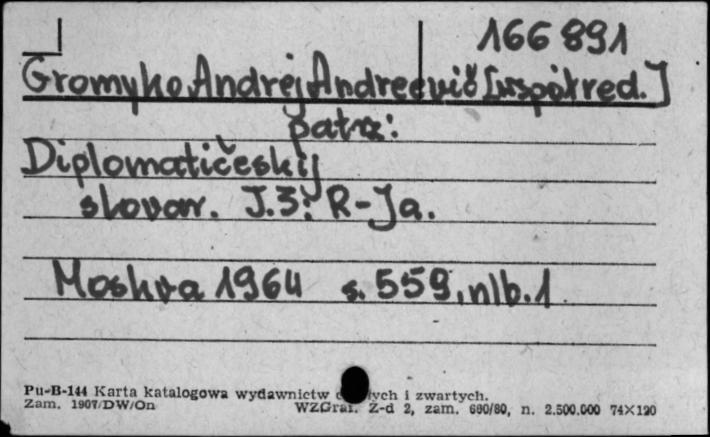 166 891
Gromyko, Andrej Andreevič [współred.]
patrz:
Diplomatičeskij
slovar. T.3: R-Ja.
Moskva 1964 s. 559, nlb. 1
Pu-B-144 Karta katalogowa wydawnictw i zwartych.
Zam. 1907/DW/On WZGraf. Z-d 2, zam. 680/80, n. 2.500.000 74×120